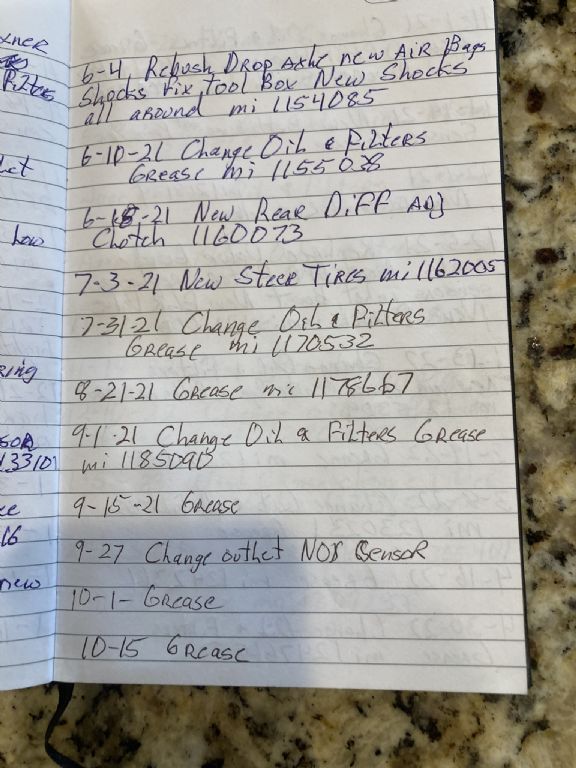 6-4 Rebush Drop Axle new Air Bags
Shocks Fix Tool Box New Shocks
all around mi 1154085
6-10-21 Change Oil & Filters
Grease mi 1155038
6-18-21 New Rear Diff Adj
Clutch 1160073
7-3-21 New Steer Tires mi 1162005
7-31-21 Change Oil & Filters
Grease mi 1170532
8-21-21 Grease mi 1178667
9-1-21 Change Oil & Filters Grease
mi 1185090
9-15-21 Grease
9-27 Change outlet NOX Sensor
10-1- Grease
10-15 Grease
Low
new